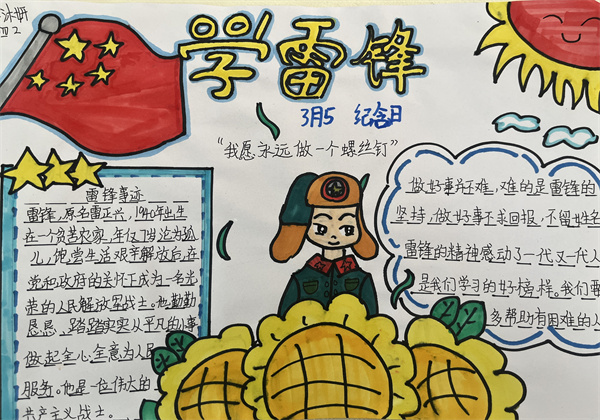 沐妍
四2
学雷锋
3月5 纪念日
"我愿永远做一个螺丝钉"
雷锋事迹
雷锋,原名雷正兴,1940年出生
在一个贫苦农家,年仅7岁沦为孤
儿,饱尝生活艰辛解放后,在
党和政府的关怀下成为一名光
荣的人民解放军战士。他勤勤
恳恳、踏踏实实从平凡的小事
做起全心全意为人民
服务。他是一位伟大的
共产主义战士。
做好事并不难,难的是雷锋的
坚持,做好事不求回报,不留姓名
雷锋的精神感动了一代又一代人
是我们学习的好榜样。我们要
多帮助有困难的人